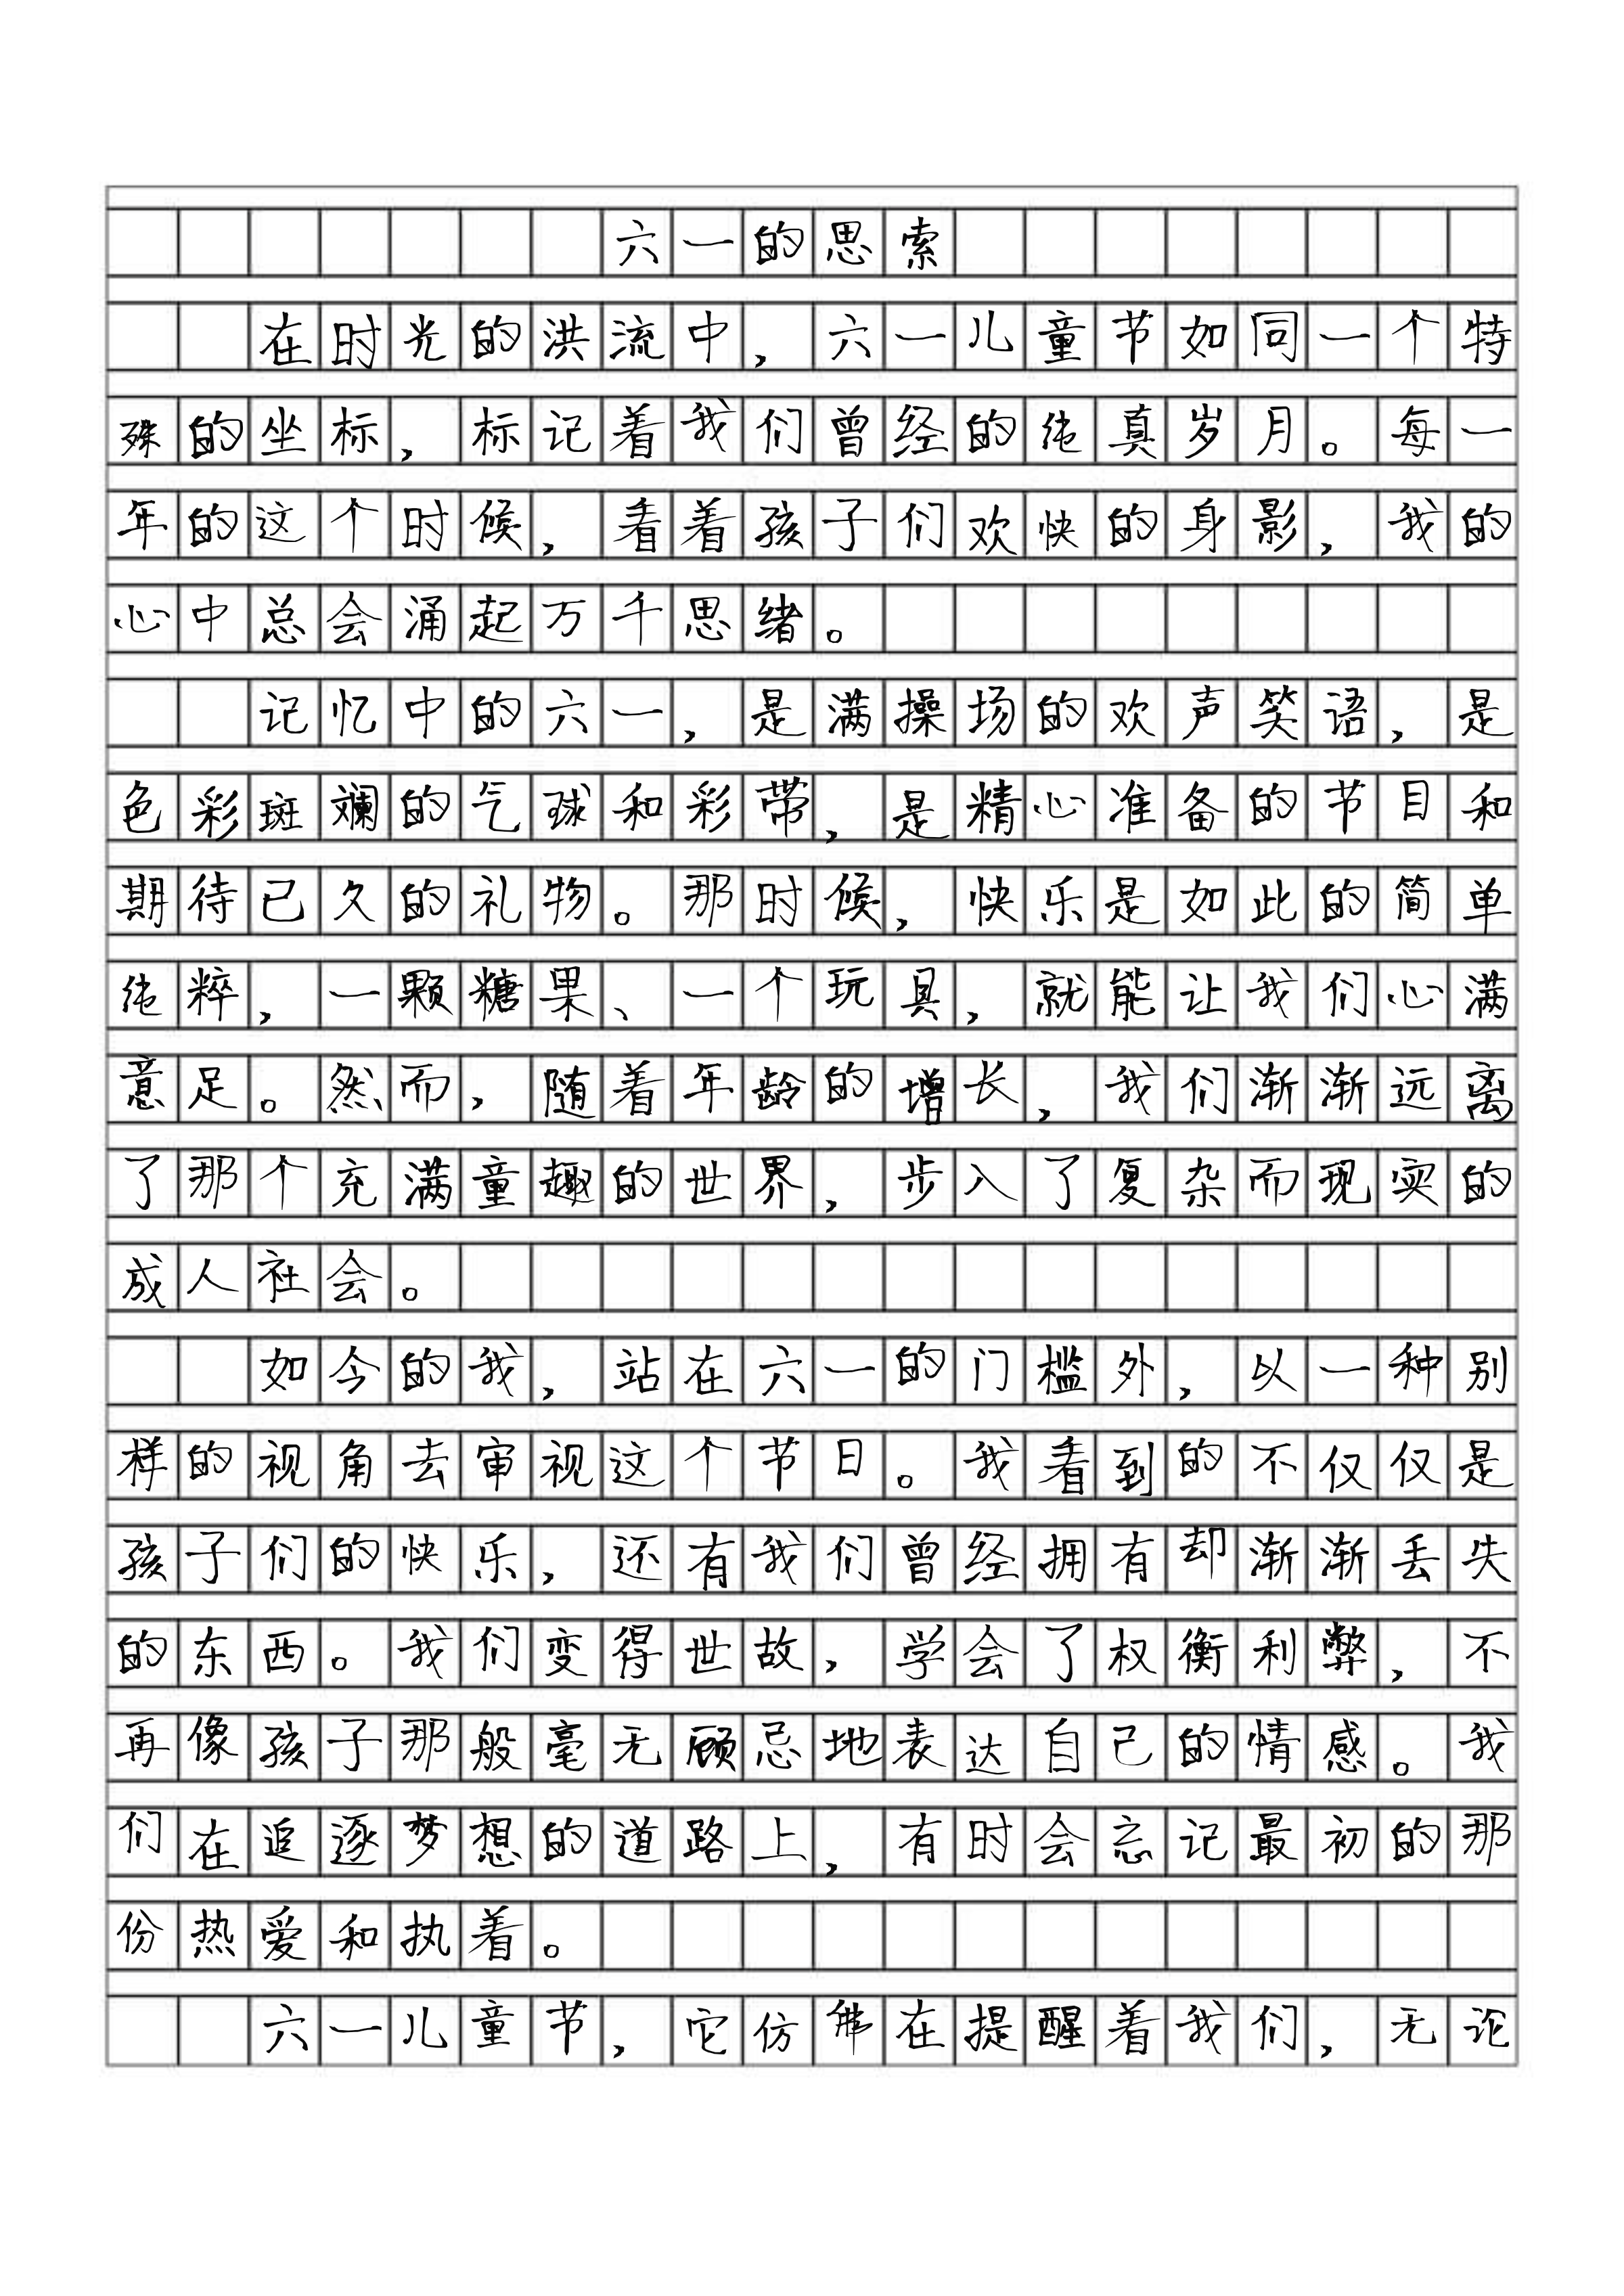 六一的思索
在时光的洪流中，六一儿童节如同一个特
殊的坐标，标记着我们曾经的纯真岁月。每一
年的这个时候，看着孩子们欢快的身影，我的
心中总会涌起万千思绪。
记忆中的六一，是满操场的欢声笑语，是
色彩斑斓的气球和彩带，是精心准备的节目和
期待已久的礼物。那时候，快乐是如此的简单
纯粹，一颗糖果、一个玩具，就能让我们心满
意足。然而，随着年龄的增长，我们渐渐远离
了那个充满童趣的世界，步入了复杂而现实的
成人社会。
如今的我，站在六一的门槛外，以一种别
样的视角去审视这个节日。我看到的不仅仅是
孩子们的快乐，还有我们曾经拥有却渐渐丢失
的东西。我们变得世故，学会了权衡利弊，不
再像孩子那般毫无顾忌地表达自己的情感。我
们在追逐梦想的道路上，有时会忘记最初的那
份热爱和执着。
六一儿童节，它仿佛在提醒着我们，无论